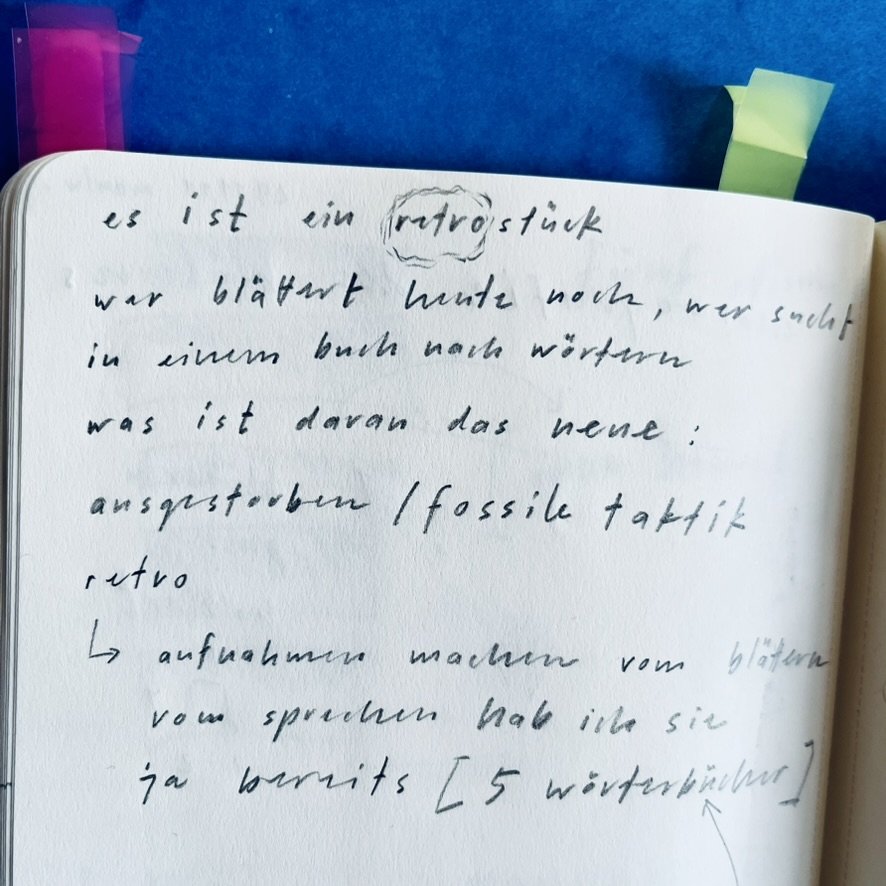 es ist ein retrostück
wer blättert heute noch, wer sucht
in einem buch nach wörtern
was ist daran das neue :
ausgestorben / fossile taktik
retro
↳ aufnahmen machen vom blättern
vom sprechen hab ich sie
ja bereits [ 5 wörterbücher ]